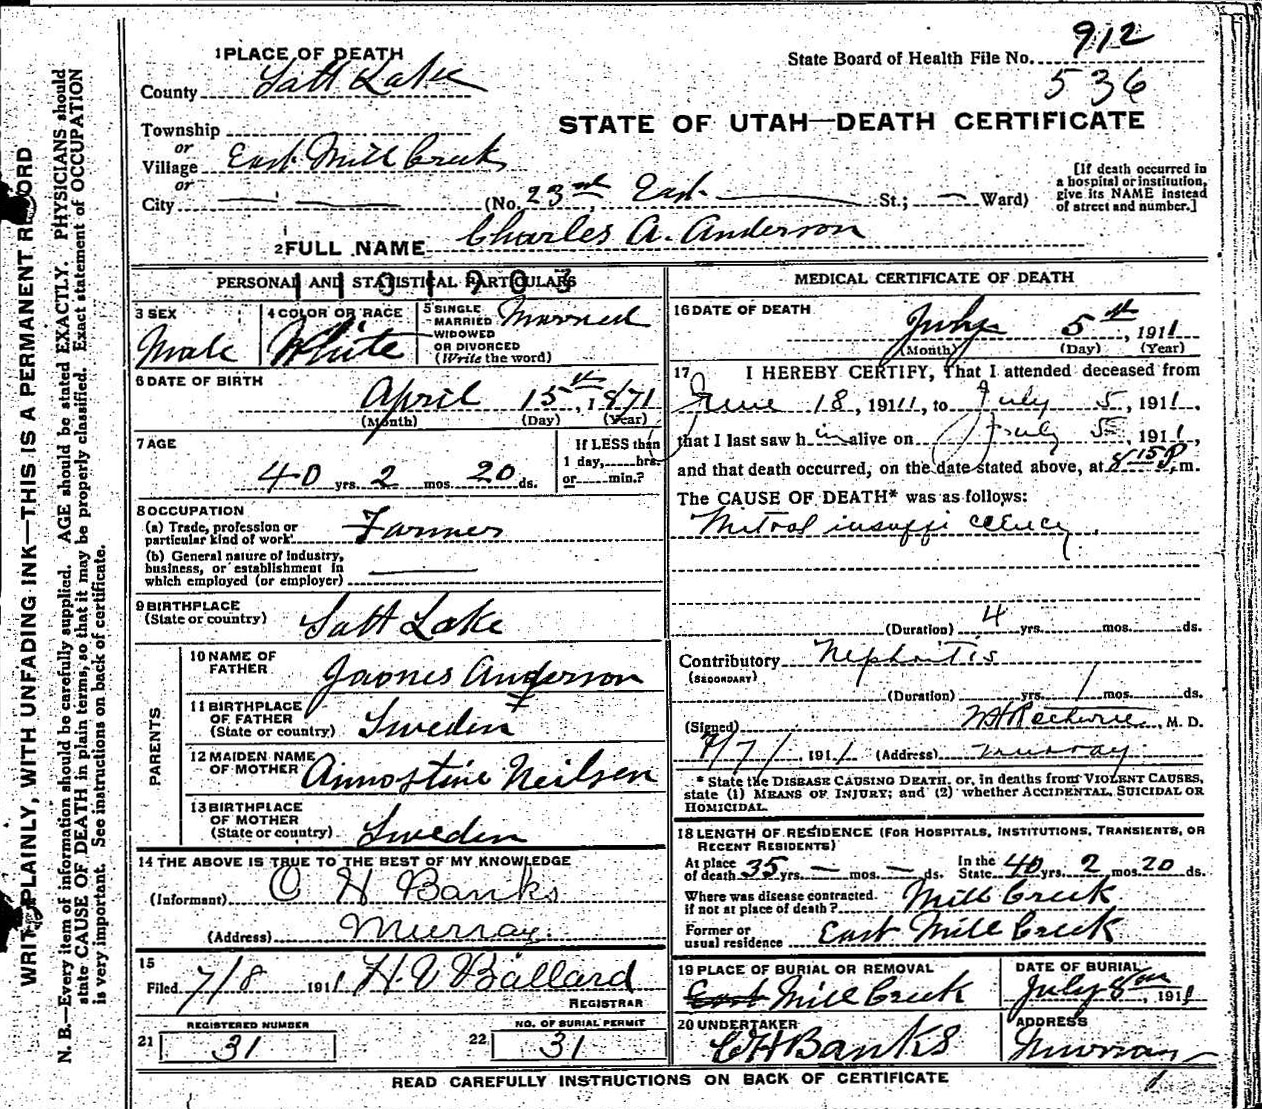 WRITE PLAINLY, WITH UNFADING INK—THIS IS A PERMANENT RECORD
N. B.—Every item of information should be carefully supplied. AGE should be stated EXACTLY. PHYSICIANS should
state CAUSE OF DEATH in plain terms, so that it may be properly classified. Exact statement of OCCUPATION
is very important. See instructions on back of certificate.
1 PLACE OF DEATH
County Salt Lake
Township
or
Village East Mill Creek
or
City
State Board of Health File No. 912
536
STATE OF UTAH—DEATH CERTIFICATE
(No. 23rd East St.; Ward)
[If death occurred in
a hospital or institution,
give its NAME instead
of street and number.]
2 FULL NAME Charles A. Anderson
PERSONAL AND STATISTICAL PARTICULARS
1101903
3 SEX
Male
4 COLOR OR RACE
White
5 SINGLE
MARRIED
WIDOWED
OR DIVORCED
(Write the word)
Married
6 DATE OF BIRTH
April 15th, 1871
(Month) (Day) (Year)
7 AGE
40 yrs. 2 mos. 20 ds.
If LESS than
1 day, hrs.
or min.?
8 OCCUPATION
(a) Trade, profession or
particular kind of work
Farmer
(b) General nature of industry,
business, or establishment in
which employed (or employer)
9 BIRTHPLACE
(State or country)
Salt Lake
PARENTS
10 NAME OF
FATHER
James Anderson
11 BIRTHPLACE
OF FATHER
(State or country)
Sweden
12 MAIDEN NAME
OF MOTHER
Annostine Neilsen
13 BIRTHPLACE
OF MOTHER
(State or country)
Sweden
14 THE ABOVE IS TRUE TO THE BEST OF MY KNOWLEDGE
(Informant) O H Banks
(Address) Murray.
15
Filed 7/8 1911 H. V Ballard
REGISTRAR
REGISTERED NUMBER
21 31
NO. OF BURIAL PERMIT
22 31
MEDICAL CERTIFICATE OF DEATH
16 DATE OF DEATH
July 5th, 1911
(Month) (Day) (Year)
17 I HEREBY CERTIFY, That I attended deceased from
June 18, 1911, to July 5, 1911,
that I last saw h im alive on July 5, 1911,
and that death occurred, on the date stated above, at 8 15 P. m.
The CAUSE OF DEATH* was as follows:
Mitral insufficiency.
(Duration) 4 yrs. mos. ds.
Contributory Nephritis
(SECONDARY)
(Duration) yrs. 1 mos. ds.
(Signed) M. D.
7/7/, 1911 (Address) Murray.
* State the DISEASE CAUSING DEATH, or, in deaths from VIOLENT CAUSES,
state (1) MEANS OF INJURY; and (2) whether ACCIDENTAL, SUICIDAL OR
HOMICIDAL.
18 LENGTH OF RESIDENCE (FOR HOSPITALS, INSTITUTIONS, TRANSIENTS, OR
RECENT RESIDENTS)
At place
of death 35 yrs. — mos. — ds.
In the
State 40 yrs. 2 mos. 20 ds.
Where was disease contracted.
if not at place of death? Mill Creek
Former or
usual residence East Mill Creek
19 PLACE OF BURIAL OR REMOVAL
East Mill Creek
DATE OF BURIAL
July 8th, 1911
20 UNDERTAKER
O H Banks
ADDRESS
Murray
READ CAREFULLY INSTRUCTIONS ON BACK OF CERTIFICATE